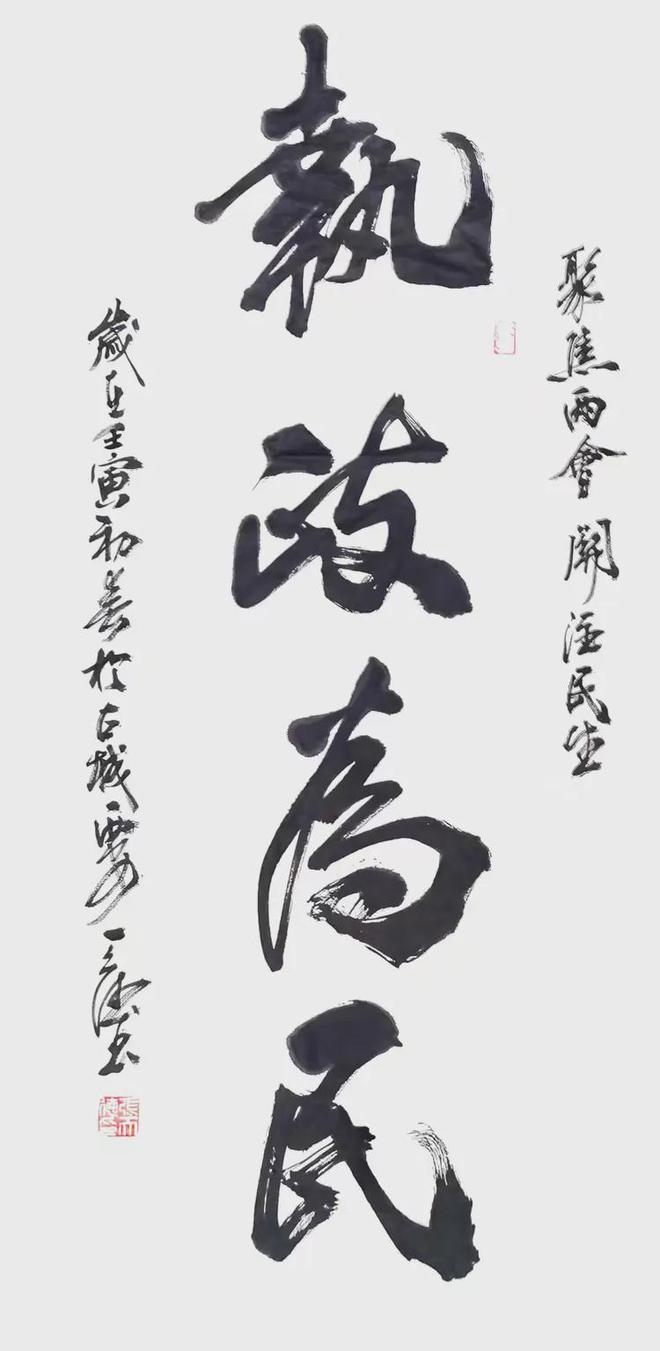 聚焦兩會 關注民生
執政為民
歲在壬寅初春於古城西安 書